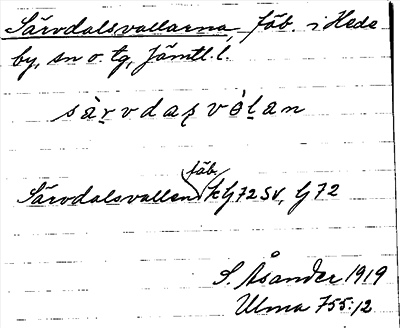 Särvdalsvallarna, fäb. i Hede
by, sn o. tg, Jämtl. l.
sàr̲vdaʂvòl̲an
fäb.
Särvdalsvallen kG72SV, G72
S. Åsander 1919
Ulma 755:12